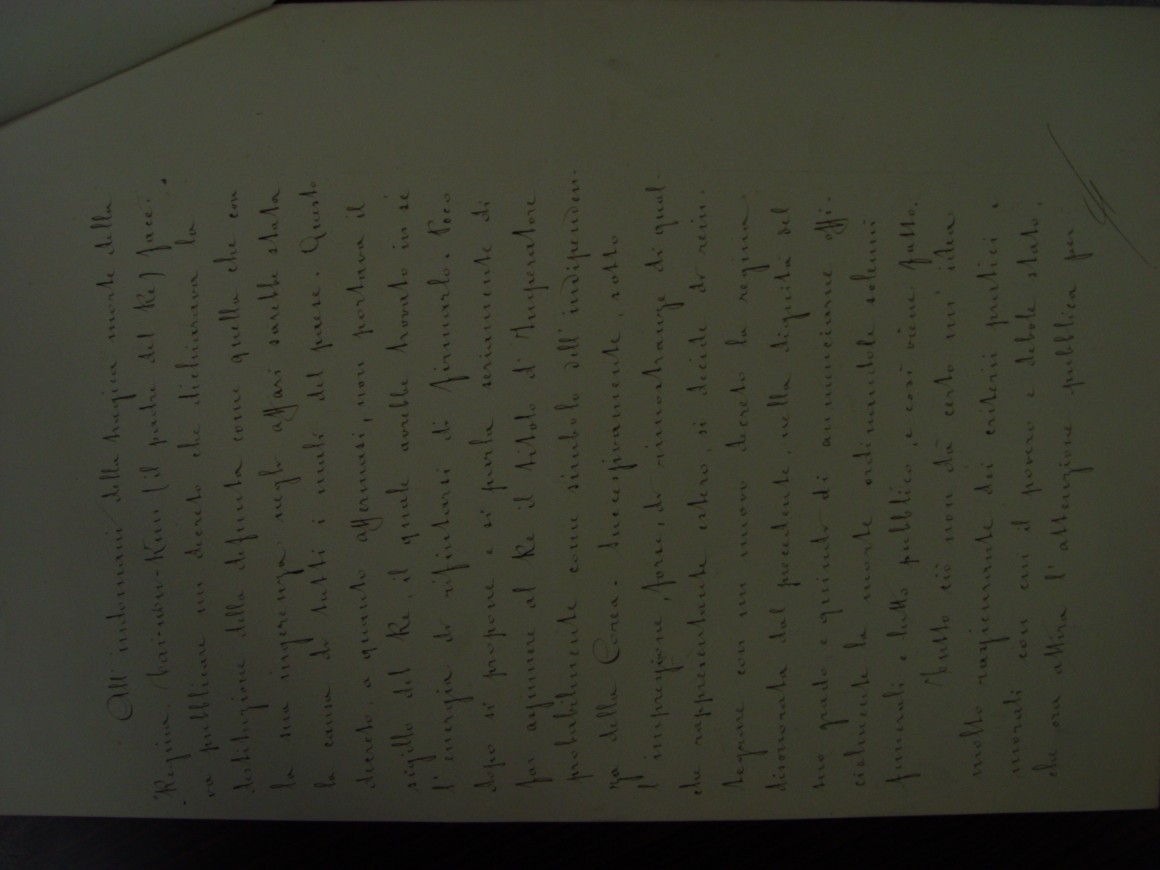 All'indomani della tragica morte della
Regina, Tai-uon-Kun (il padre del Re) face-
va pubblicare un decreto che dichiarava la
destituzione della defunta come quella che con
la sua ingerenza negli affari sarebbe stata
la causa di tutti i mali del paese. Questo
decreto, a quanto affermasi, non portava il
sigillo del Re, il quale avrebbe trovato in sè
l'energia di rifiutarsi di firmarlo. Poco
dopo si propone e si parla seriamente di
far assumere al Re il titolo d'Imperatore
probabilmente come simbolo dell'indipenden-
za della Corea. Successivamente, sotto
l'impressione, forse, di rimostranze di qual-
che rappresentante estero, si decide di rein-
tegrare con un nuovo decreto la regina
disonorata dal precedente, nella dignità del
suo grado, e quindi di annunciarne offi-
cialmente la morte ordinandole solenni
funerali e lutto pubblico, e così viene fatto.
Tutto ciò non dà certo un'idea
molto rassicurante dei criterii pratici e
morali con cui il povero e debole stato,
che ora attira l'attenzione pubblica per